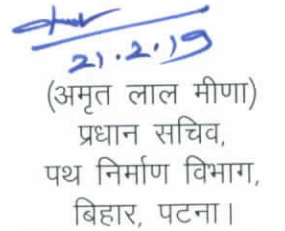 21.2.19
(अमृत लाल मीणा)
प्रधान सचिव,
पथ निर्माण विभाग,
बिहार, पटना।